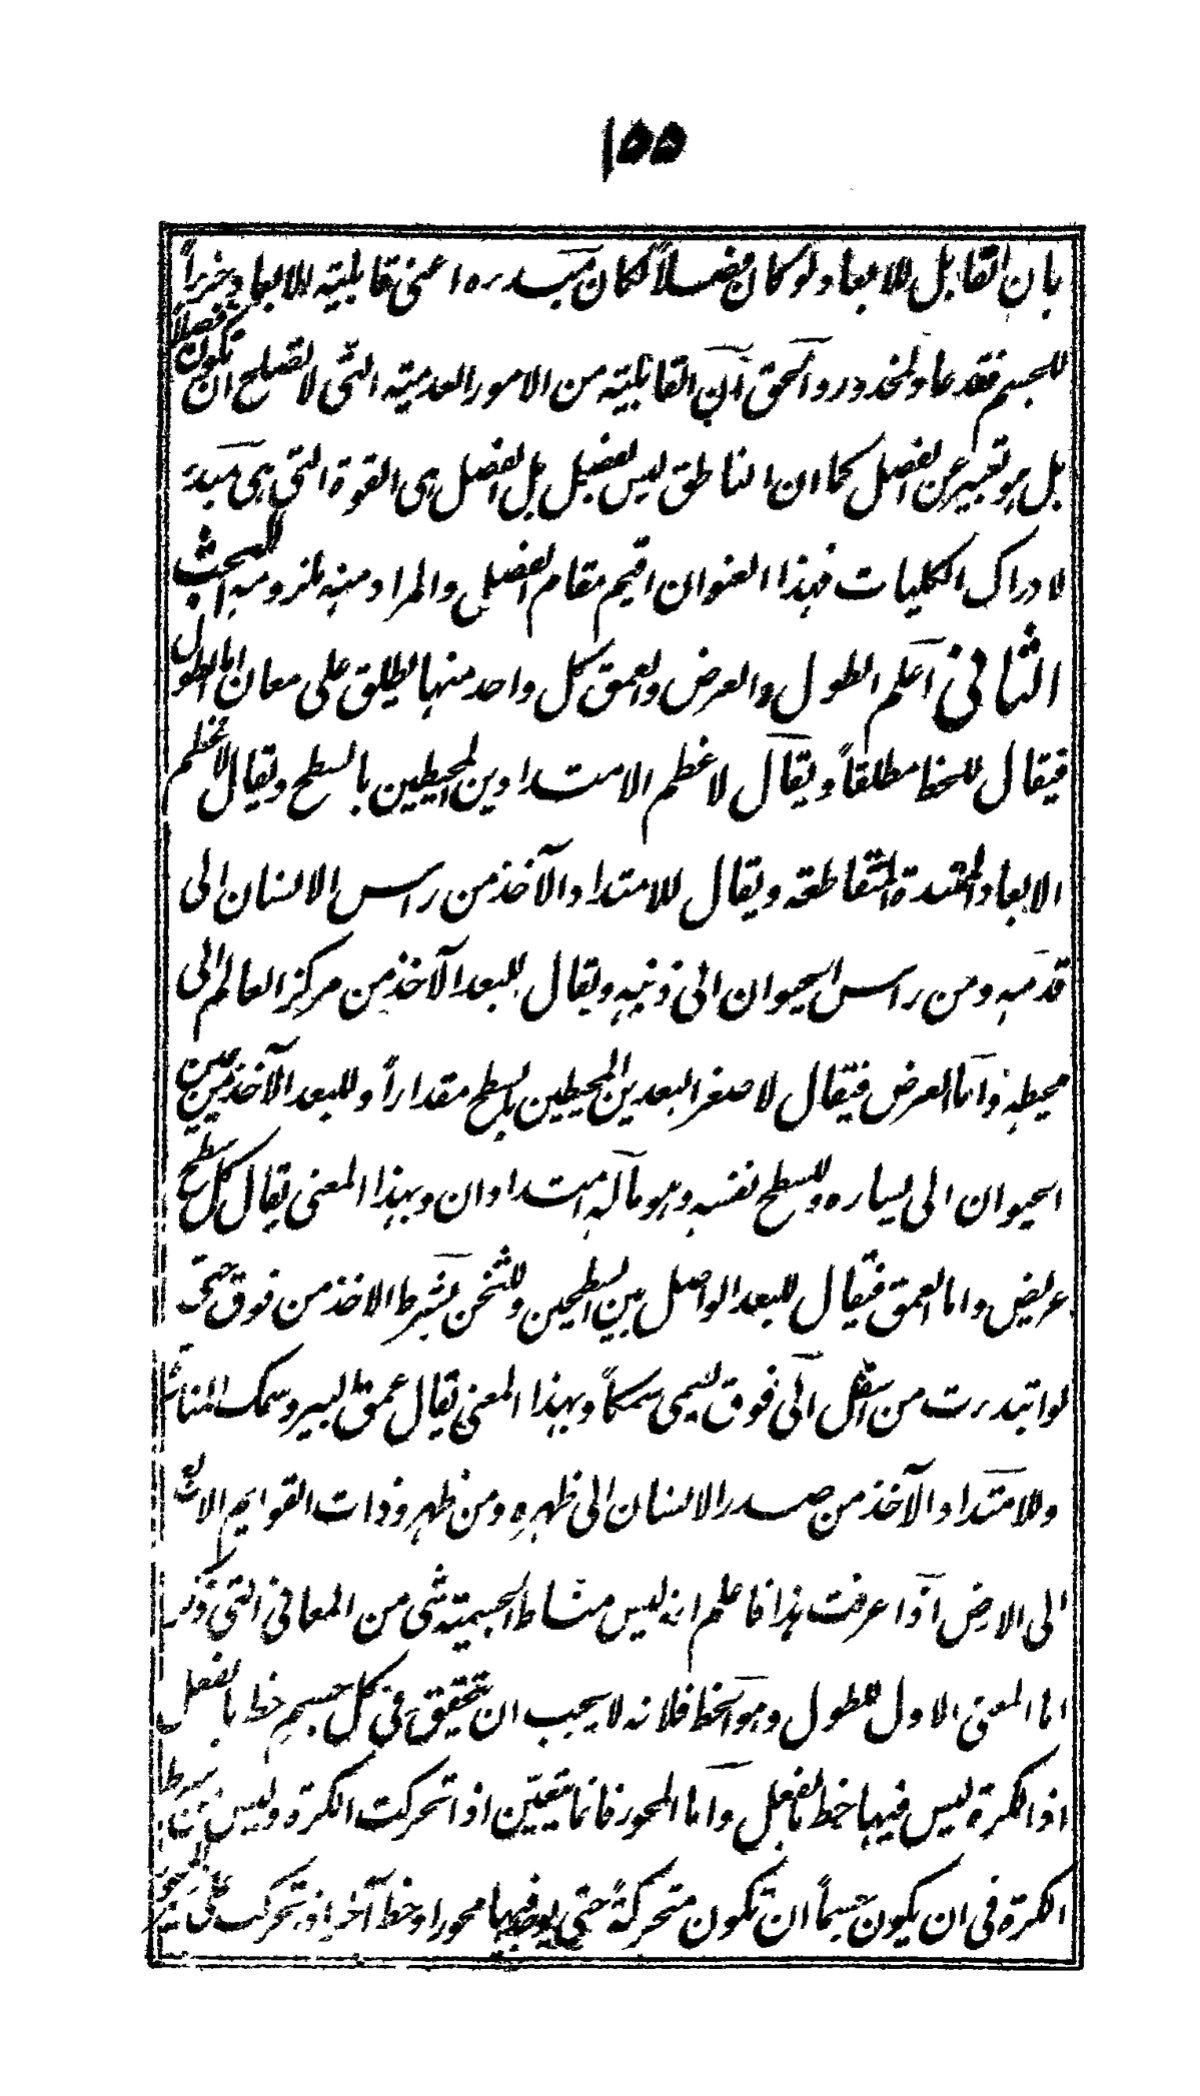 ١٥٥
بان القابل للابعاد لو كان فصلاً لكان مبدءه اعنی قابلية للابعاد جزءاً
للجسم فقد عاد المحذور والحق ان القابلية من الامور العدمية التی لا تصلح ان تكون فصلاً
بل هو تعبير عن الفصل كما ان الناطق ليس بفصل بل الفصل هی القوة التی هی مبدء
لادراك الكليات فهذا العنوان اقيم مقام الفصل والمراد منه ملزومه البحث
الثانی اعلم الطول والعرض والعمق كل واحد منها يطلق علی معان اما الطول
فيقال للخط مطلقاً ويقال لاعظم الامتدادين المحيطين بالسطح ويقال لاعظم
الابعاد الممتدة المتقاطعة ويقال للامتداد الآخذ من راس الانسان الی
قدمه ومن راس الحيوان الی ذنبه ويقال للبعد الآخذ من مركز العالم الی
محيطه واما العرض فيقال لاصغر البعدين المحيطين بالسطح مقداراً وللبعد الآخذ من يمين
الحيوان الی يساره وللسطح نفسه وهو ما له امتدادان وبهذا المعنی يقال كل سطح
عريض واما العمق فيقال للبعد الواصل بين السطحين وللثخن بشرط الاخذ من فوق حتی
لو ابتدءت من اسفل الی فوق يسمی سمكاً وبهذا المعنی يقال عمق البير وسمك المنارة
وللامتداد الآخذ من صدر الانسان الی ظهره ومن ظهر ذوات القوايم الاربع
الی الارض اذا عرفت هذا فاعلم انه ليس مناط الجسمية شی من المعانی التی ذكر
اما المعنی الاول للطول وهو الخط فلانه لا يجب ان يتحقق فی كل جسم خط بالفعل
اذ الكرة ليس فيها خط بالفعل واما المحور فانما يتعين اذا تحركت الكرة وليس من شرط
الكرة فی ان يكون جسماً ان تكون متحركة حتی يوجد فيها محور او خط آخر اذ تحركت علی